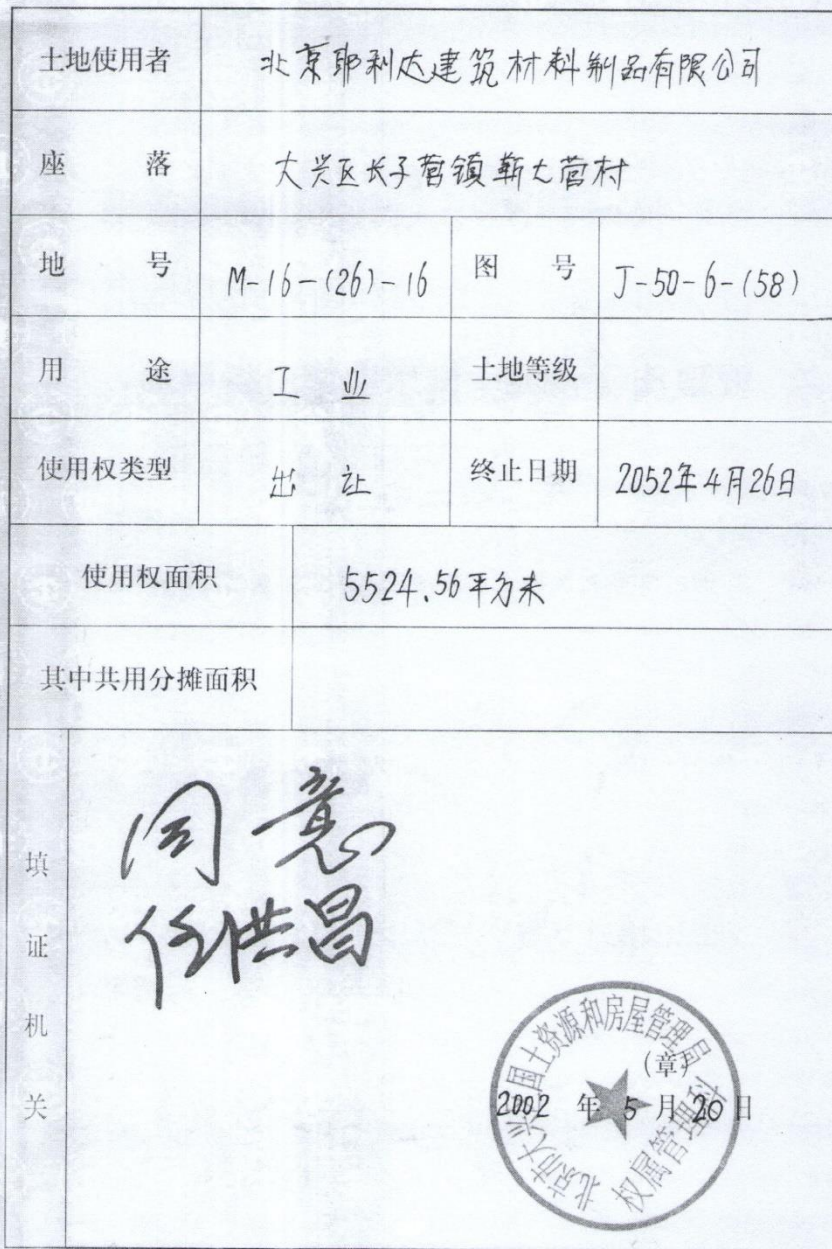 土地使用者 北京耶利达建筑材料制品有限公司
座落 大兴区长子营镇靳七营村
地号 M-16-(26)-16 图号 J-50-6-(58)
用途 工业 土地等级
使用权类型 出让 终止日期 2052年4月26日
使用权面积 5524.56平方米
其中共用分摊面积
填证机关
同意
任洪昌
北京市大兴国土资源和房屋管理局
(章)
2002 年 5 月 20 日
权属管理科